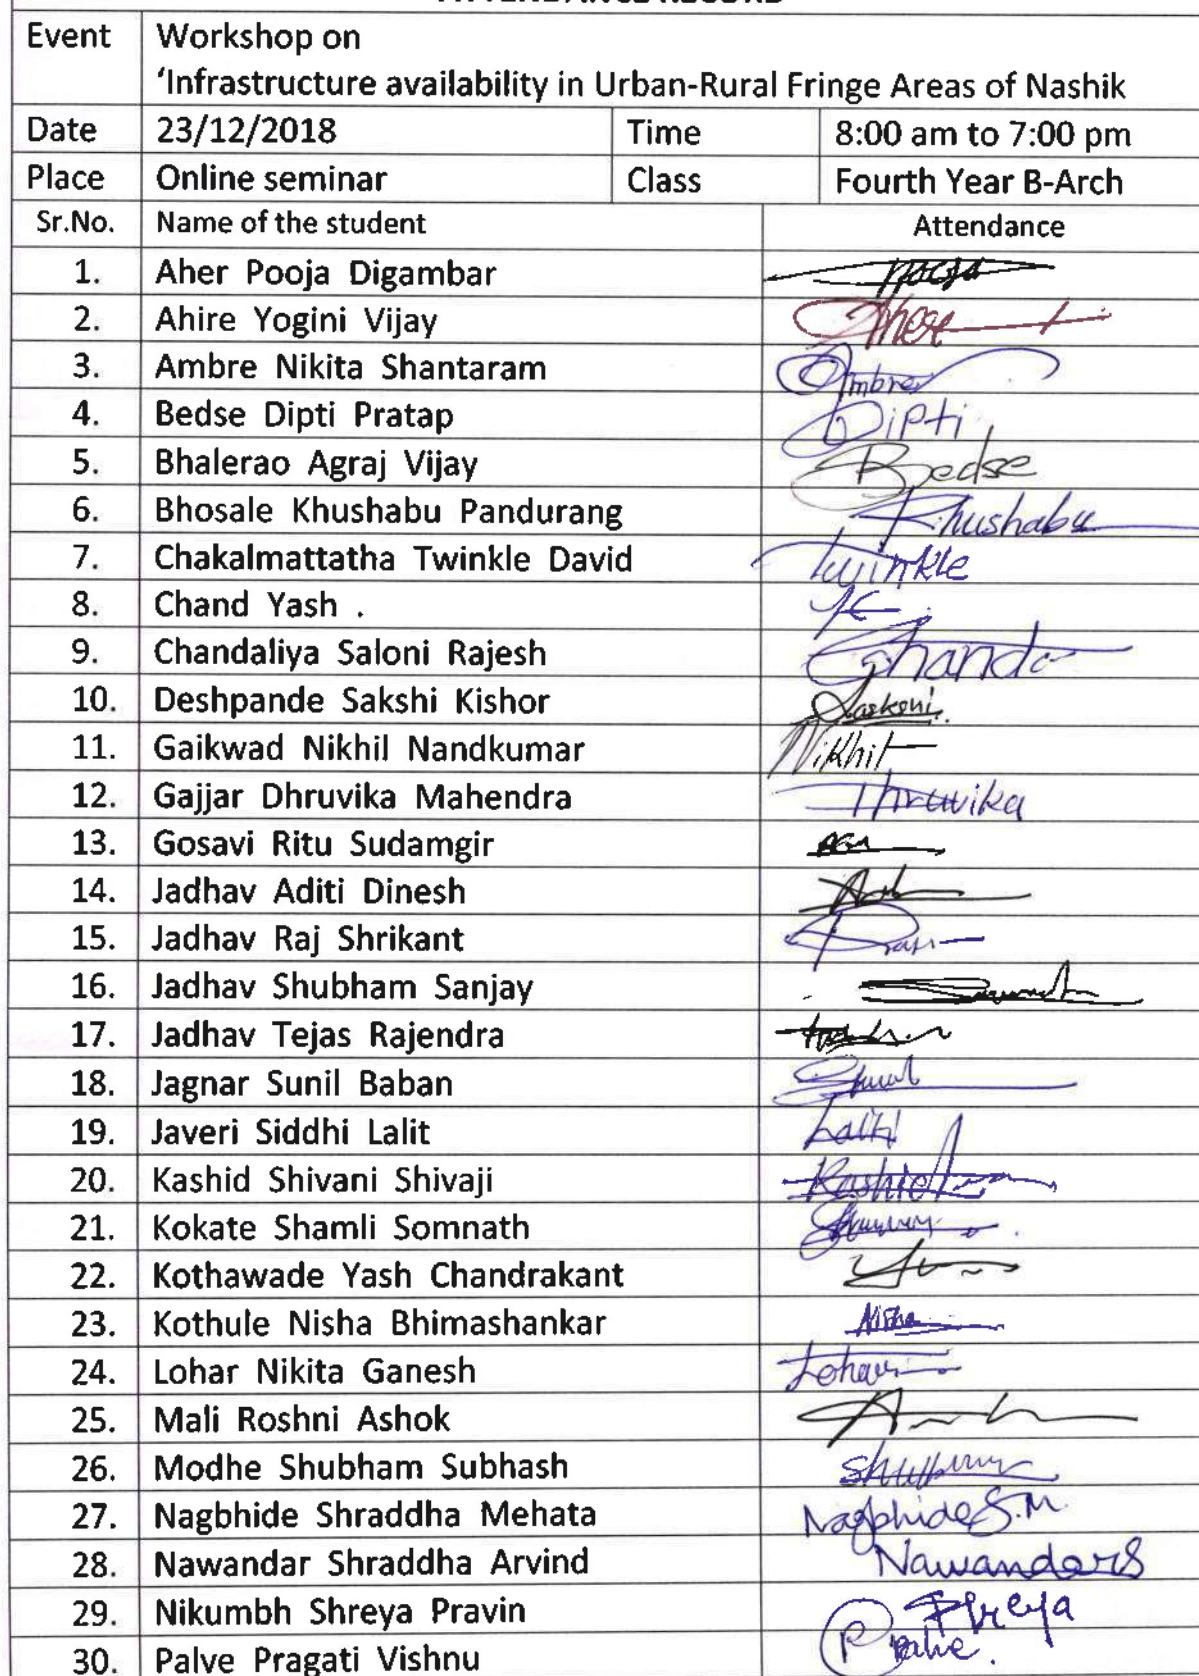 Event Workshop on
'Infrastructure availability in Urban-Rural Fringe Areas of Nashik
Date 23/12/2018 Time 8:00 am to 7:00 pm
Place Online seminar Class Fourth Year B-Arch
Sr.No. Name of the student Attendance
1. Aher Pooja Digambar
2. Ahire Yogini Vijay
3. Ambre Nikita Shantaram Ambre
4. Bedse Dipti Pratap Dipti
5. Bhalerao Agraj Vijay Bedse
6. Bhosale Khushabu Pandurang Khushabu
7. Chakalmattatha Twinkle David Twinkle
8. Chand Yash .
9. Chandaliya Saloni Rajesh
10. Deshpande Sakshi Kishor
11. Gaikwad Nikhil Nandkumar Nikhil
12. Gajjar Dhruvika Mahendra Dhruvika
13. Gosavi Ritu Sudamgir
14. Jadhav Aditi Dinesh
15. Jadhav Raj Shrikant
16. Jadhav Shubham Sanjay
17. Jadhav Tejas Rajendra
18. Jagnar Sunil Baban
19. Javeri Siddhi Lalit Lalit
20. Kashid Shivani Shivaji Kashid
21. Kokate Shamli Somnath
22. Kothawade Yash Chandrakant
23. Kothule Nisha Bhimashankar Nisha
24. Lohar Nikita Ganesh Lohar
25. Mali Roshni Ashok
26. Modhe Shubham Subhash
27. Nagbhide Shraddha Mehata Nagbhide S.M.
28. Nawandar Shraddha Arvind Nawandar S
29. Nikumbh Shreya Pravin Shreya
30. Palve Pragati Vishnu P Palve.